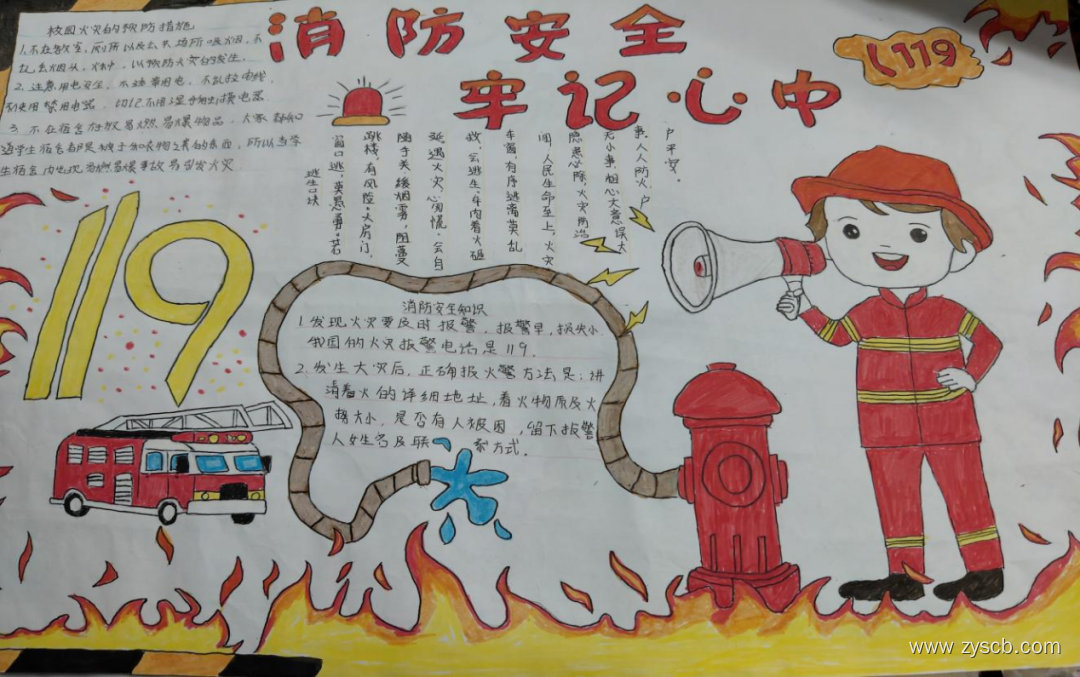 消防安全
牢记心中
119
校园火灾的预防措施
1.不在教室，厕所以及公共场所吸烟，不
乱丢烟头，火种，以预防火灾的发生。
2.注意用电安全，不违章用电，不乱拉电线，
不使用禁用电器，切记不用
3.不在宿舍存放易燃易爆物品，大家都知
道学生宿舍都是
生宿舍内出现易燃易爆事故易引发火灾
户平安。
事，人人防火，户
无小事，粗心大意误大
隐患必除，火灾防治
闻，人民生命至上，火灾
车窗，有序逃离莫乱
救，云逃生。车内着火砸
延，遇火灾，心勿慌，
随手关
跳楼，有风险。火房门，
窗口逃，莫思勇。若
逃生口诀
119
消防安全知识
1.发现火灾要及时报警，报警早，损失小
我国的火灾报警电话是119.
2.发生大灾后，正确报火警方法是：讲
清着火的详细地址，着火物质及火
势大小，是否有人被困，留下报警
人姓名及联系方式.
www.zyscb.com